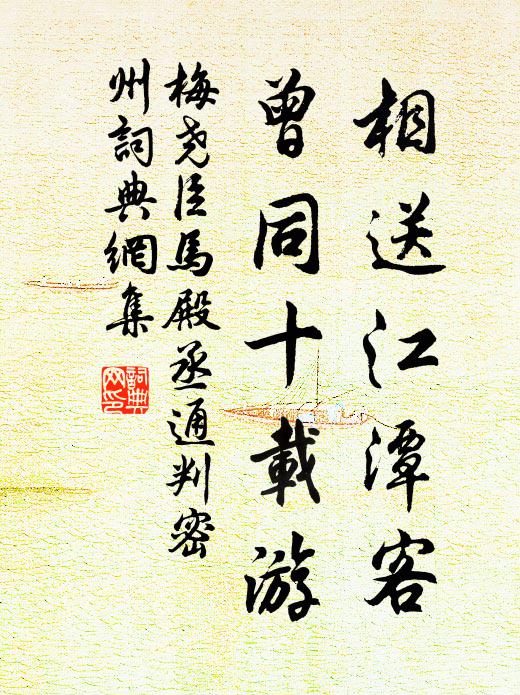 相送江潭客
曾同十載游
梅尧臣馬殿丞通判密
州詞典網集
詞典
网印